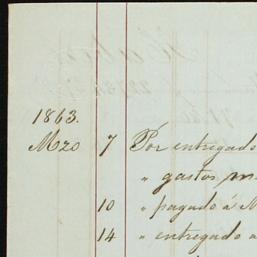 1863.
Mzo 7 Por entregado
" gastos
10 " pagado á M
14 " entregado a